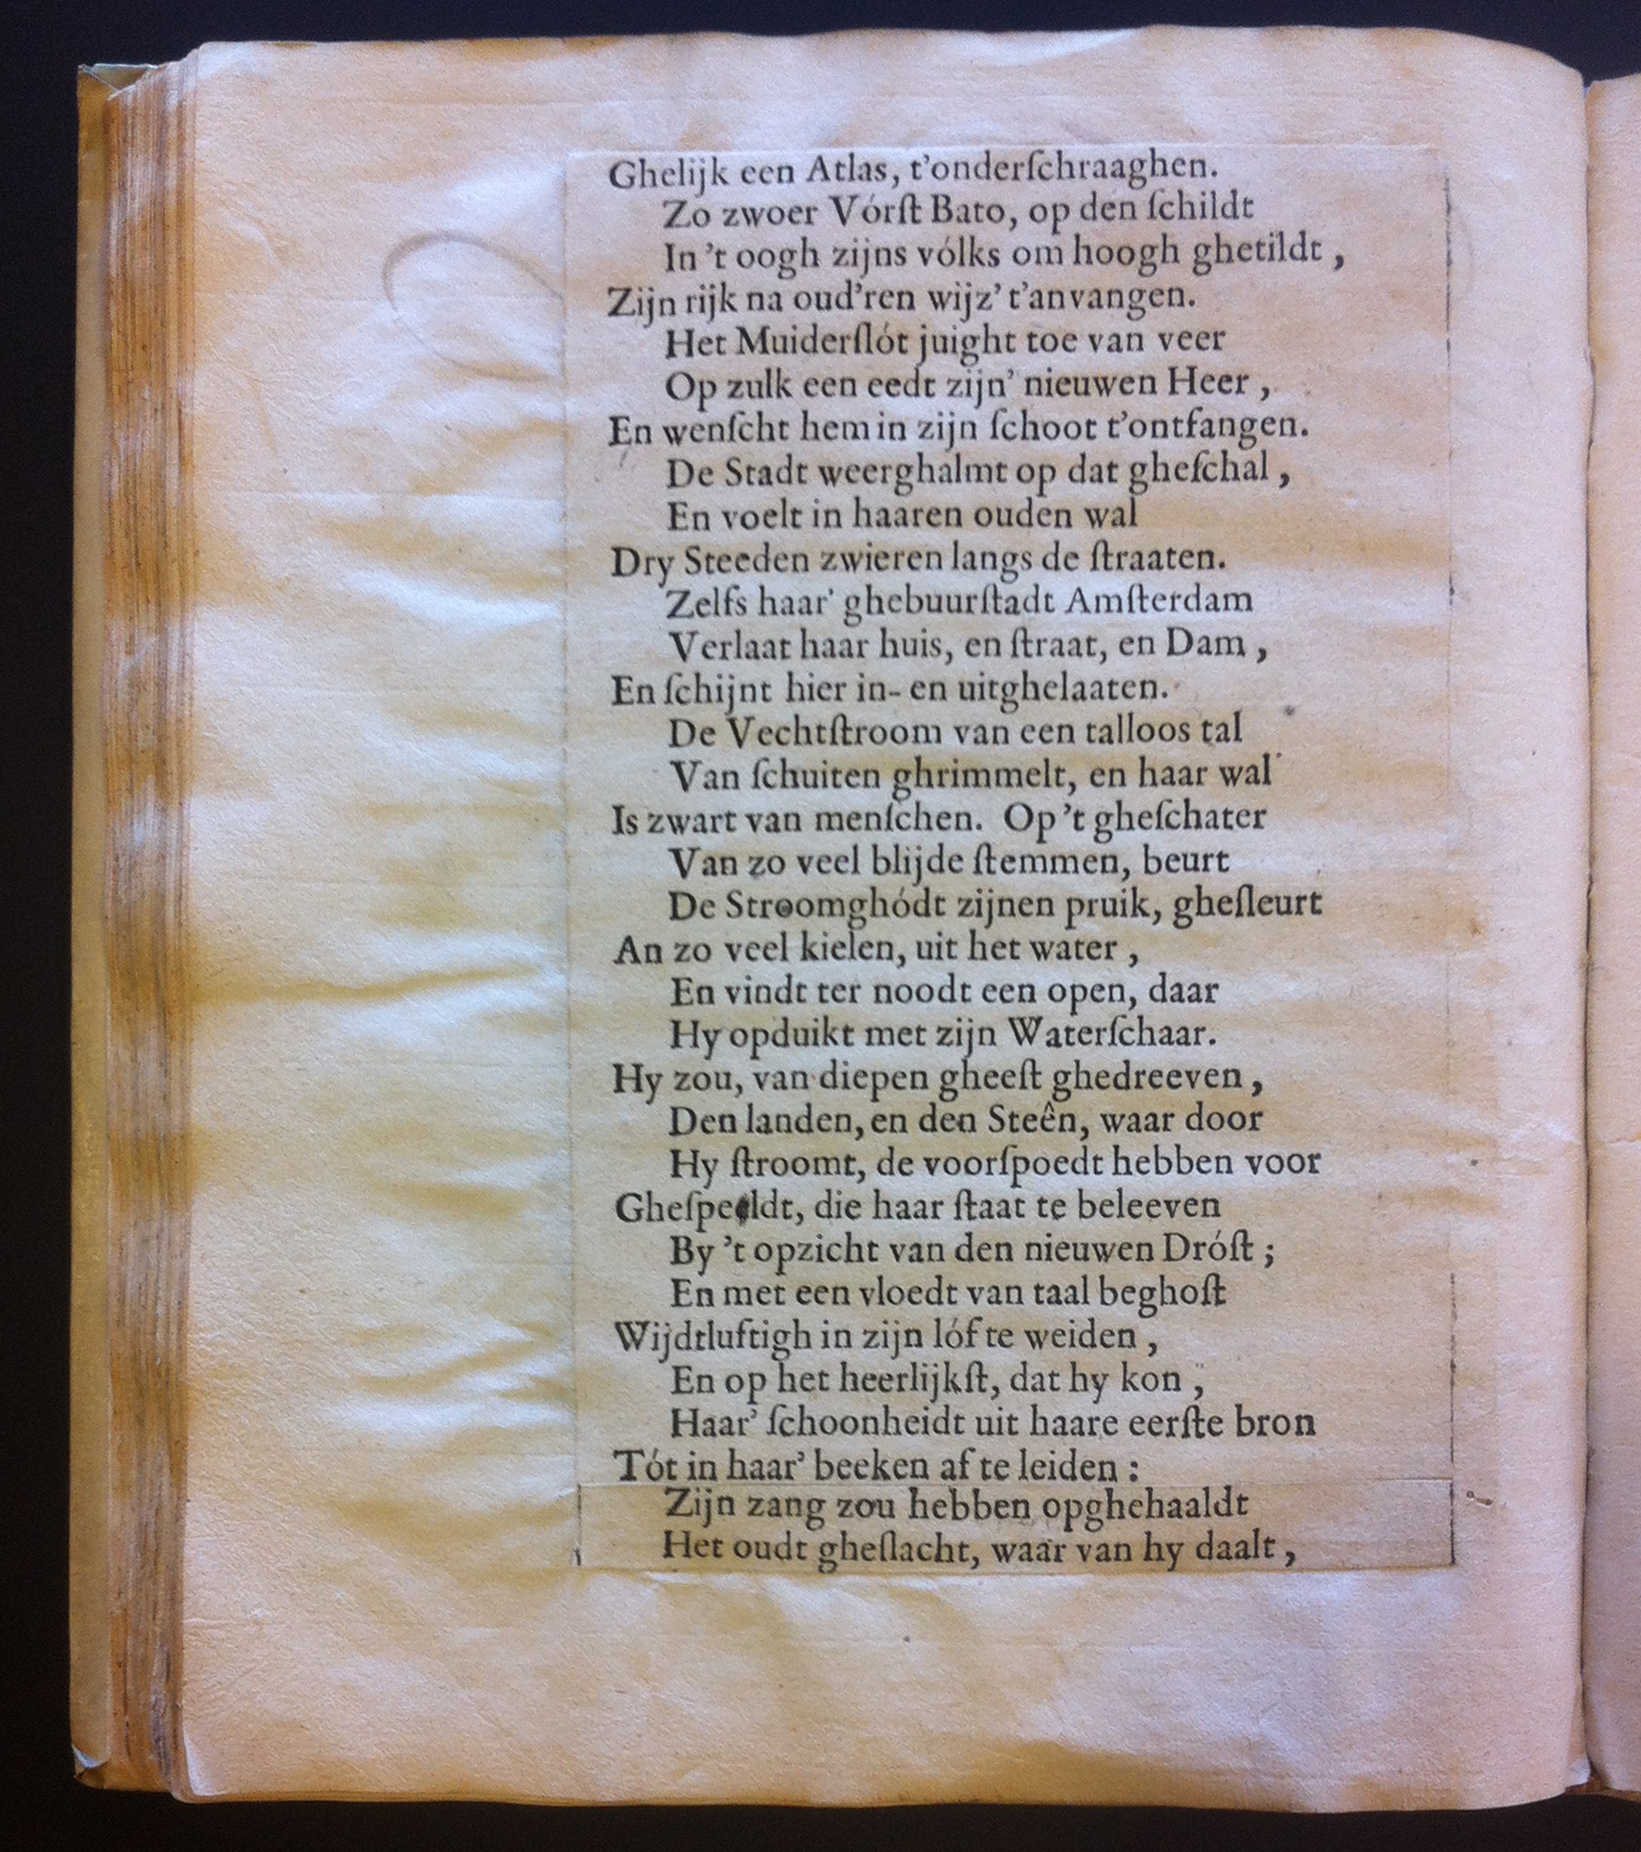 Ghelijk een Atlas, t'onderſchraaghen.
Zo zwoer Vórſt Bato, op den ſchildt
In 't oogh zijns vólks om hoogh ghetildt,
Zijn rijk na oud'ren wijz' t'anvangen.
Het Muiderſlót juight toe van veer
Op zulk een eedt zijn' nieuwen Heer,
En wenſcht hem in zijn ſchoot t'ontfangen.
De Stadt weerghalmt op dat gheſchal,
En voelt in haaren ouden wal
Dry Steeden zwieren langs de ſtraaten.
Zelfs haar' ghebuurſtadt Amſterdam
Verlaat haar huis, en ſtraat, en Dam,
En ſchijnt hier in- en uitghelaaten.
De Vechtſtroom van een talloos tal
Van ſchuiten ghrimmelt, en haar wal
Is zwart van menſchen. Op 't gheſchater
Van zo veel blijde ſtemmen, beurt
De Stroomghódt zijnen pruik, gheſleurt
An zo veel kielen, uit het water,
En vindt ter noodt een open, daar
Hy opduikt met zijn Waterſchaar.
Hy zou, van diepen gheeſt ghedreeven,
Den landen, en den Steên, waar door
Hy ſtroomt, de voorſpoedt hebben voor
Gheſpeeldt, die haar ſtaat te beleeven
By 't opzicht van den nieuwen Dróſt;
En met een vloedt van taal beghoſt
Wijdtluftigh in zijn lóf te weiden,
En op het heerlijkſt, dat hy kon,
Haar' ſchoonheidt uit haare eerſte bron
Tót in haar' beeken af te leiden:
Zijn zang zou hebben opghehaaldt
Het oudt gheſlacht, waar van hy daalt,